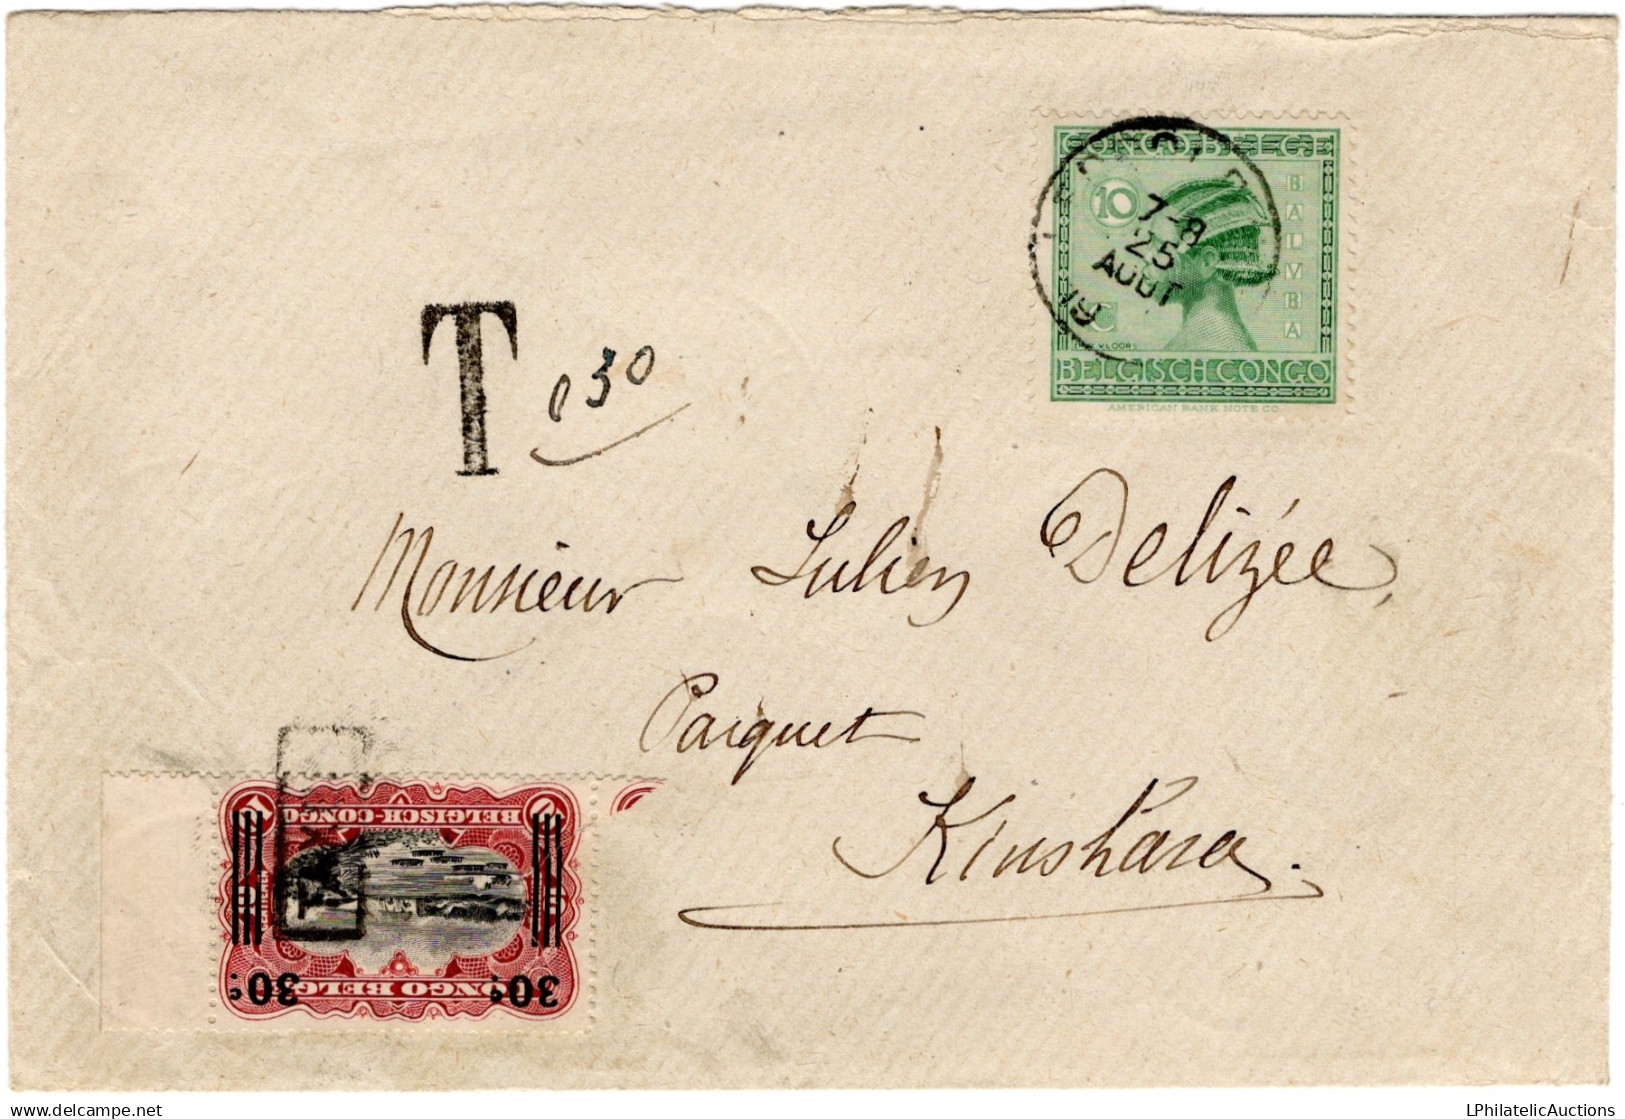 CONGO BELGE
10
BALUBA
C
BELGISCH CONGO
AMERICAN BANK NOTE CO.
7-8
25
AOUT
19
T 030
Monsieur Julien Delizée,
Parquet
Kinshasa.
BELGISCH-CONGO
CONGO BELGE
30c 30c
delcampe.net
LPhilatelicAuctions